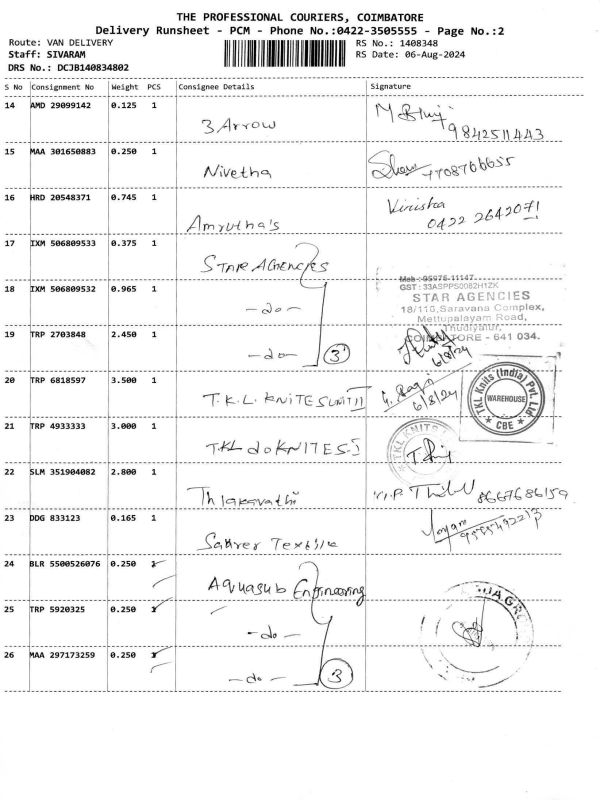 THE PROFESSIONAL COURIERS, COIMBATORE
Delivery Runsheet - PCM - Phone No.:0422-3505555 - Page No.:2
Route: VAN DELIVERY RS No.: 1408348
Staff: SIVARAM RS Date: 06-Aug-2024
DRS No.: DCJB140834802
S No Consignment No Weight PCS Consignee Details Signature
14 AMD 29099142 0.125 1
3 Arrow 9842511443
15 MAA 301650883 0.250 1
Nivetha 7708766655
16 HRD 20548371 0.745 1
Amrutha's 0422 2642071
17 IXM 506809533 0.375 1
STAR AGENCIES
Mob : 95976-11147
GST : 33ASPPS0082H1ZK
18 IXM 506809532 0.965 1
STAR AGENCIES
18/110, Saravana Complex,
Mettupalayam Road,
Thudiyalur,
COIMBATORE - 641 034.
-do-
19 TRP 2703848 2.450 1
-do- 3 6/8/24
20 TRP 6818597 3.500 1
T.K.L. KNITES UNIT II 6/8/24
TKL Knits (India) Pvt. Ltd
WAREHOUSE
CBE
21 TRP 4933333 3.000 1
TKL do KNITES-I
TKL KNITS
22 SLM 351904082 2.800 1
Thilakavathi 8667686159
23 DDG 833123 0.165 1
Saurer Textile
24 BLR 5500526076 0.250 1
Aquasub Engineering
25 TRP 5920325 0.250 1
-do-
26 MAA 297173259 0.250 1
-do- 3